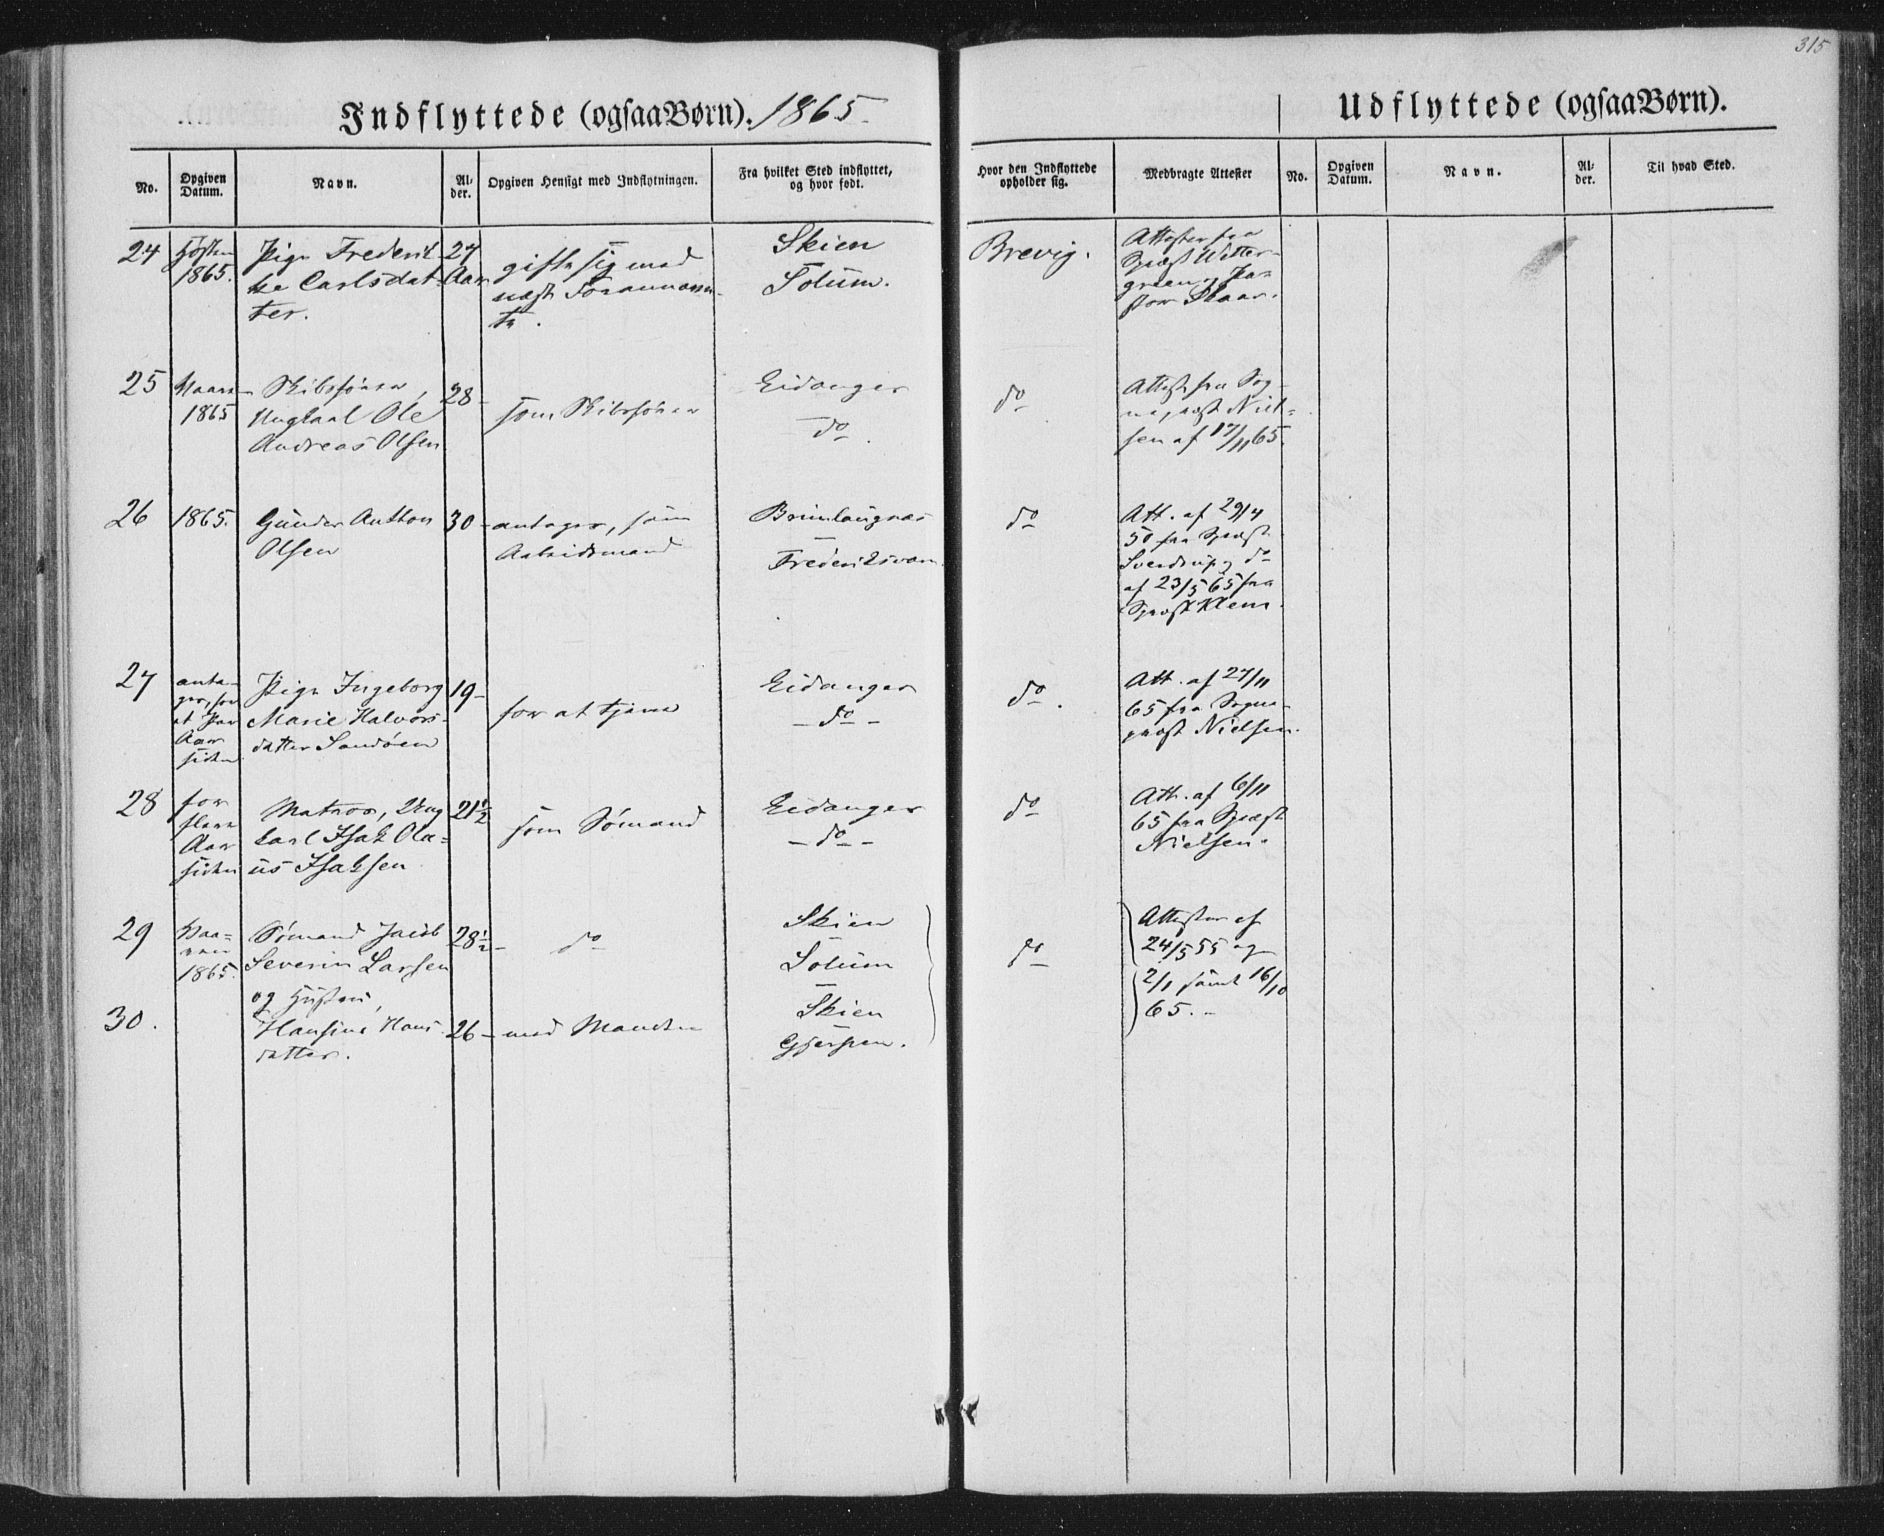 315
Indflyttede (ogsaa Børn). 1865.
Udflyttede (ogsaa Børn).
No.
Opgiven Datum.
Navn.
Al-der.
Opgiven Hensigt med Indflytningen.
Fra hvilket Sted indflyttet, og hvor født.
Hvor den Indflyttede opholder sig.
Medbragte Attester
No.
Opgiven Datum.
Navn.
Al-der.
Til hvad Sted.
24
Høsten
1865.
Pige Frederik-
ke Carlsdat-
ter.
27
Aar
gifte sig med
næst Foranmeld-
te.
Skien
Solum.
Brevig.
Attester fra
Spræst Wetter-
green og Pa-
stor Skaar.
25
Vaaren
1865
Skibstømrer,
Ungkarl Ole
Andreas Olsen
28-
som Skibstømrer
Eidanger
do
do
Attest fra Sog-
nepræst Niel-
sen af 17/11 65.
26
1865.
Gunder Anthon
Olsen
30-
antager, som
Arbeidsmand
Brunlaugnæs
Frederiksværn
do
Att. af 29/4
50 fra Spræst
Sverdrup og do
af 23/5 65 fra
Spræst Klem.
27
anta-
ger, for
et Par
Aar
siden
Pige Ingeborg
Marie Halvors-
datter Sandøen
19-
for at tjene
Eidanger
- do -
do.
Att. af 27/11
65 fra Sogne-
præst Nielsen.
28
for
flere
Aar
siden
Matros, Ung-
karl Isak Ola-
us Isaksen
21½
som Sømand
Eidanger
- do -
do
Att. af 6/11
65 fra Spræst
Nielsen.
29
Vaa-
ren
1865.
Sømand Jacob
Severin Larsen
og Hustru,
28½-
do
Skien
Solum
do
Attester af
24/5 55 og
2/1 samt 16/10
65. -
30.
Hansine Hans-
datter.
26-
med Manden
Skien
Gjerpen.